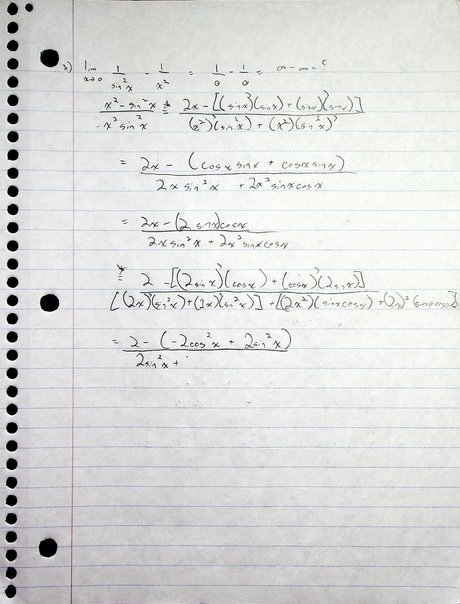 x) lim x→0 1/sin²x - 1/x² = 1/0 - 1/0 = ∞ - ∞ = ?
(x² - sin²x)/(x² sin²x) = (2x - [(sinx)'(sinx) + (sinx)'(sinx)])/((x²)'(sin²x) + (x²)(sin²x)')
= (2x - (cosx sinx + cosx sinx))/(2x sin²x + 2x² sinx cosx)
= (2x - (2 sinx)cosx)/(2x sin²x + 2x² sinx cosx)
= (2 - [(2sinx)'(cosx) + (cosx)'(2sinx)])/([(2x)'(sin²x) + (2x)(sin²x)'] + [(2x²)'(sinx cosx) + (2x)²(sinx cosx)'])
= (2 - (-2cos²x + 2sin²x))/(2sin²x +